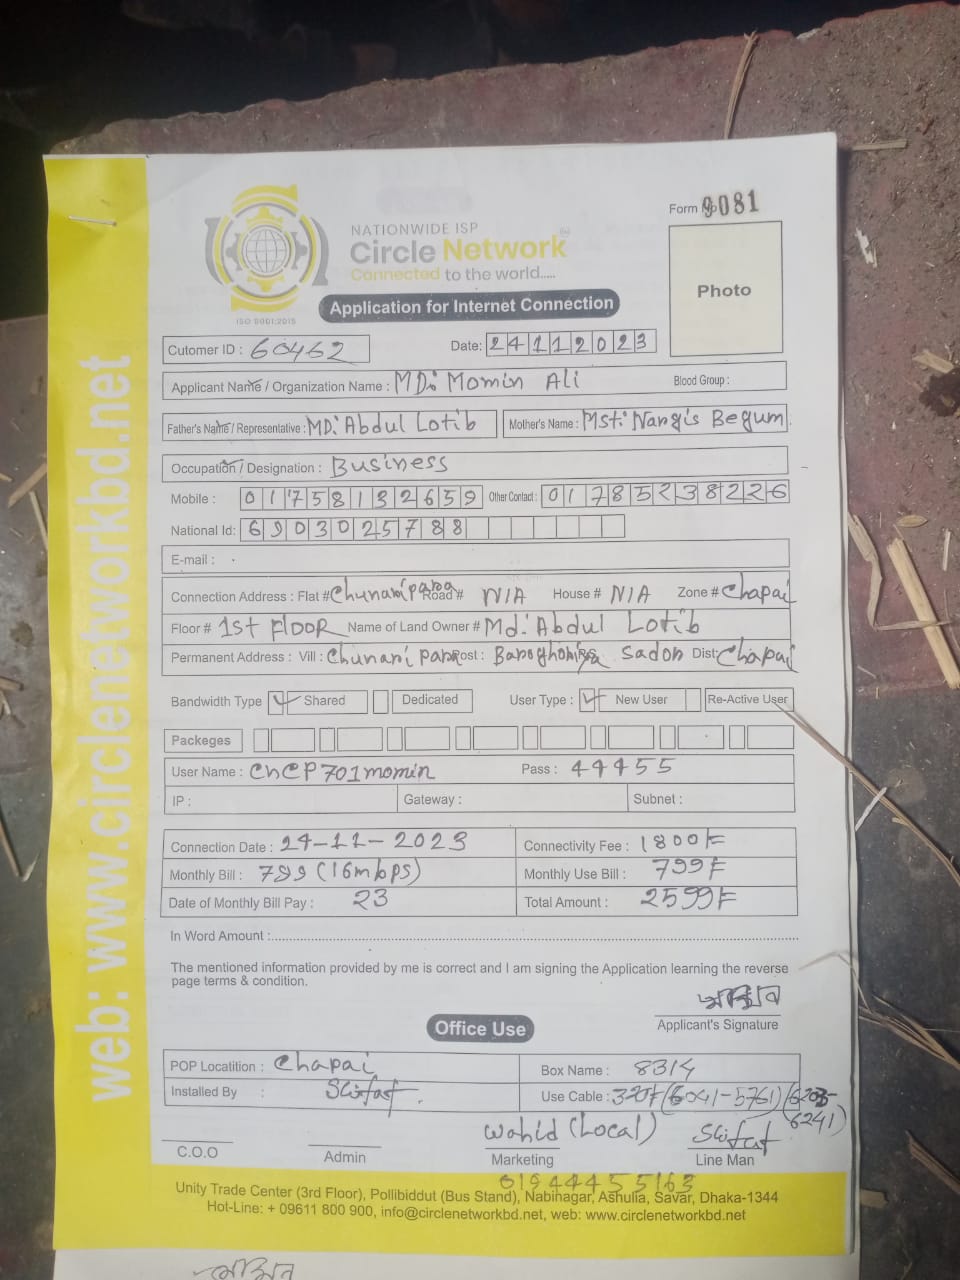 web: www.circlenetworkbd.net
Form No 9081
NATIONWIDE ISP
Circle Network
Connected to the world.....
ISO 9001:2015
Application for Internet Connection
Photo
Cutomer ID : 60462 Date: 24112023
Applicant Name / Organization Name : MD: Momin Ali Blood Group :
Father's Name / Representative : MD: Abdul Lotib Mother's Name : Mst: Nargis Begum
Occupation / Designation : Business
Mobile : 01758132659 Other Contact : 01785238226
National Id: 6903025788
E-mail :
Connection Address : Flat # Chunaripara Road # N/A House # N/A Zone # Chapai
Floor # 1st Floor Name of Land Owner # Md: Abdul Lotib
Permanent Address : Vill : Chunari para Post : Sador Dist: Chapai
Bandwidth Type Shared Dedicated User Type : New User Re-Active User
Packeges
User Name : ChCP701momin Pass : 44455
IP : Gateway : Subnet :
Connection Date : 24-11-2023 Connectivity Fee : 1800/=
Monthly Bill : 799 (16mbps) Monthly Use Bill : 799/=
Date of Monthly Bill Pay : 23 Total Amount : 2599/=
In Word Amount :
The mentioned information provided by me is correct and I am signing the Application learning the reverse
page terms & condition.
Applicant's Signature
Office Use
POP Locatition : Chapai Box Name : 8314
Installed By : Sifat Use Cable : (6041-5761) (6203-
6241)
Wahid (Local) Sifat
C.O.O Admin Marketing Line Man
01944455163
Unity Trade Center (3rd Floor), Pollibiddut (Bus Stand), Nabinagar, Ashulia, Savar, Dhaka-1344
Hot-Line: + 09611 800 900, info@circlenetworkbd.net, web: www.circlenetworkbd.net